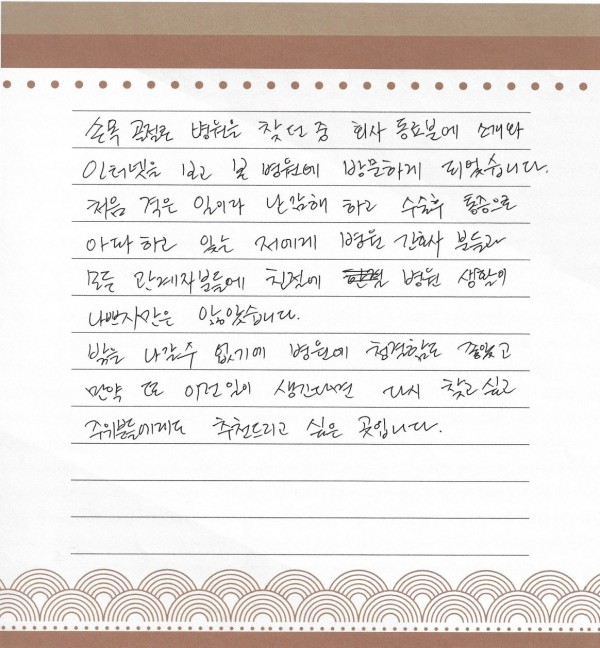 손목 골절로 병원을 찾던 중 회사 동료분에 소개와
인터넷을 보고 본 병원에 방문하게 되었습니다.
처음 격은 일이라 난감해 하고 수술후 통증으로
아파하고 있는 저에게 병원 간호사 분들과
모든 관계자분들에 친절에 병원 생활이
나쁘지만은 않았습니다.
밖을 나갈수 없기에 병원에 청결함도 좋았고
만약 또 이런일이 생긴다면 다시 찾고 싶고
주위분들에게도 추천드리고 싶은 곳입니다.